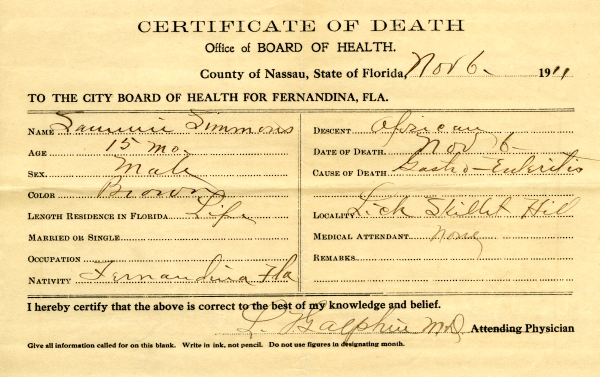 CERTIFICATE OF DEATH
Office of BOARD OF HEALTH.
County of Nassau, State of Florida, Nov 6 1911
TO THE CITY BOARD OF HEALTH FOR FERNANDINA, FLA.
NAME Sammie Simmons
AGE 15 mo.
SEX. Male
COLOR Brown
LENGTH RESIDENCE IN FLORIDA Life
MARRIED OR SINGLE
OCCUPATION
NATIVITY Fernandina Fla
DESCENT African
DATE OF DEATH Nov 6
CAUSE OF DEATH Gastro-Enteritis
LOCALITY Lick Skillet Hill
MEDICAL ATTENDANT None
REMARKS
I hereby certify that the above is correct to the best of my knowledge and belief.
L. Galphin M.D. Attending Physician
Give all information called for on this blank. Write in ink, not pencil. Do not use figures in designating month.